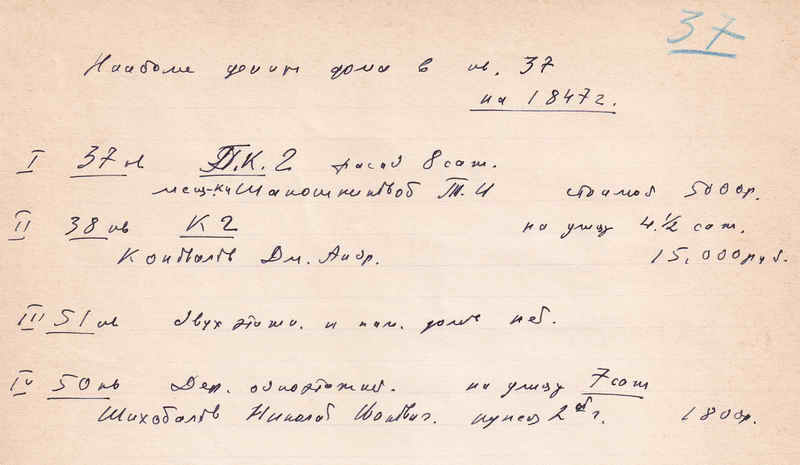 37
Наиболее ценит дома в кв. 37
на 1847 г.
I 37 кв П.К. 2 фасад 8 саж.
мещ-ки Шапошниковой Т. И стоимост 5000р.
II 38 кв К 2 на улицу 4.½ саж.
Коновалов Дм. Андр. 15,000 руб.
III 51 кв двухэтажн. и кам. домов нет.
IV 50 кв Дер. одноэтажный. на улицу 7 саж
Шихобалов Николай купец 2ой г. 1800р.